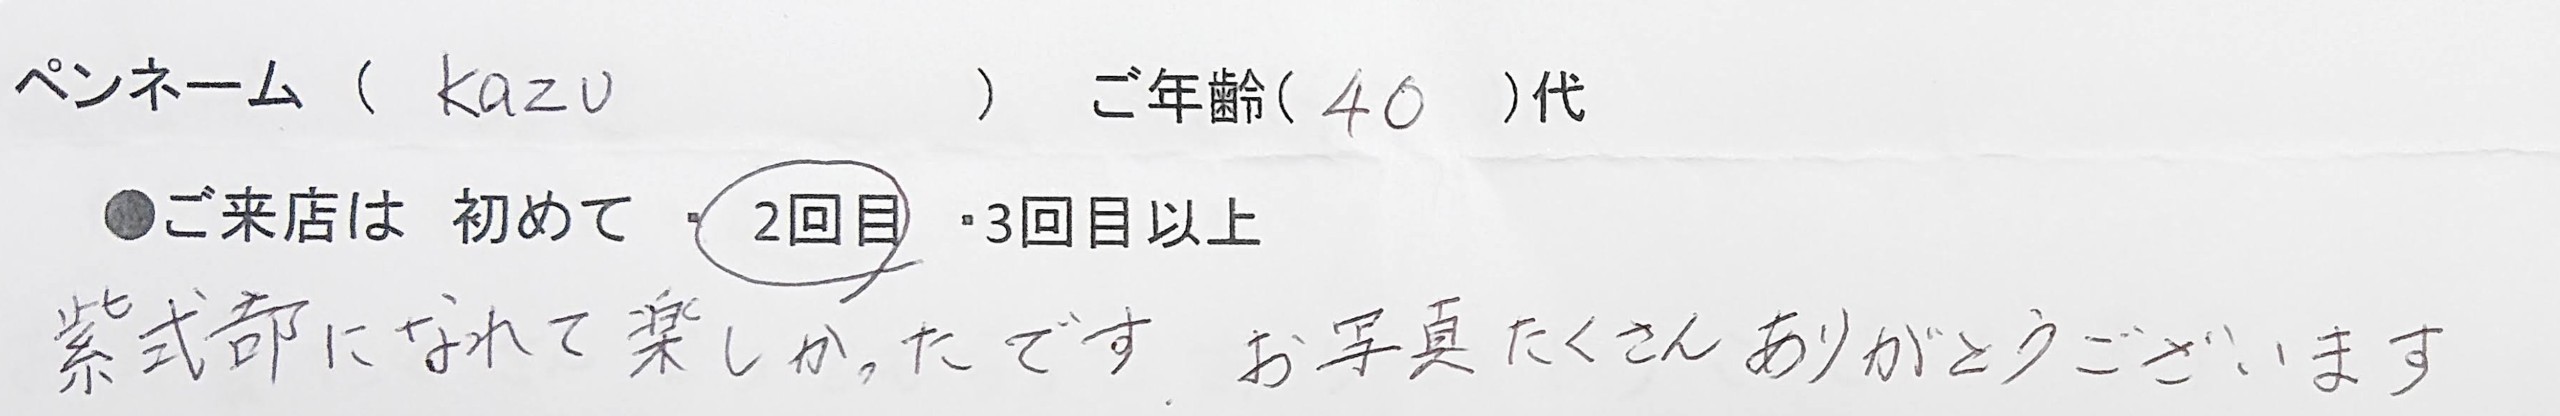 ペンネーム ( kazu ) ご年齢( 40 )代
●ご来店は 初めて ・ 2回目 ・3回目以上
紫式部になれて楽しかったです. お写真たくさんありがとうございます